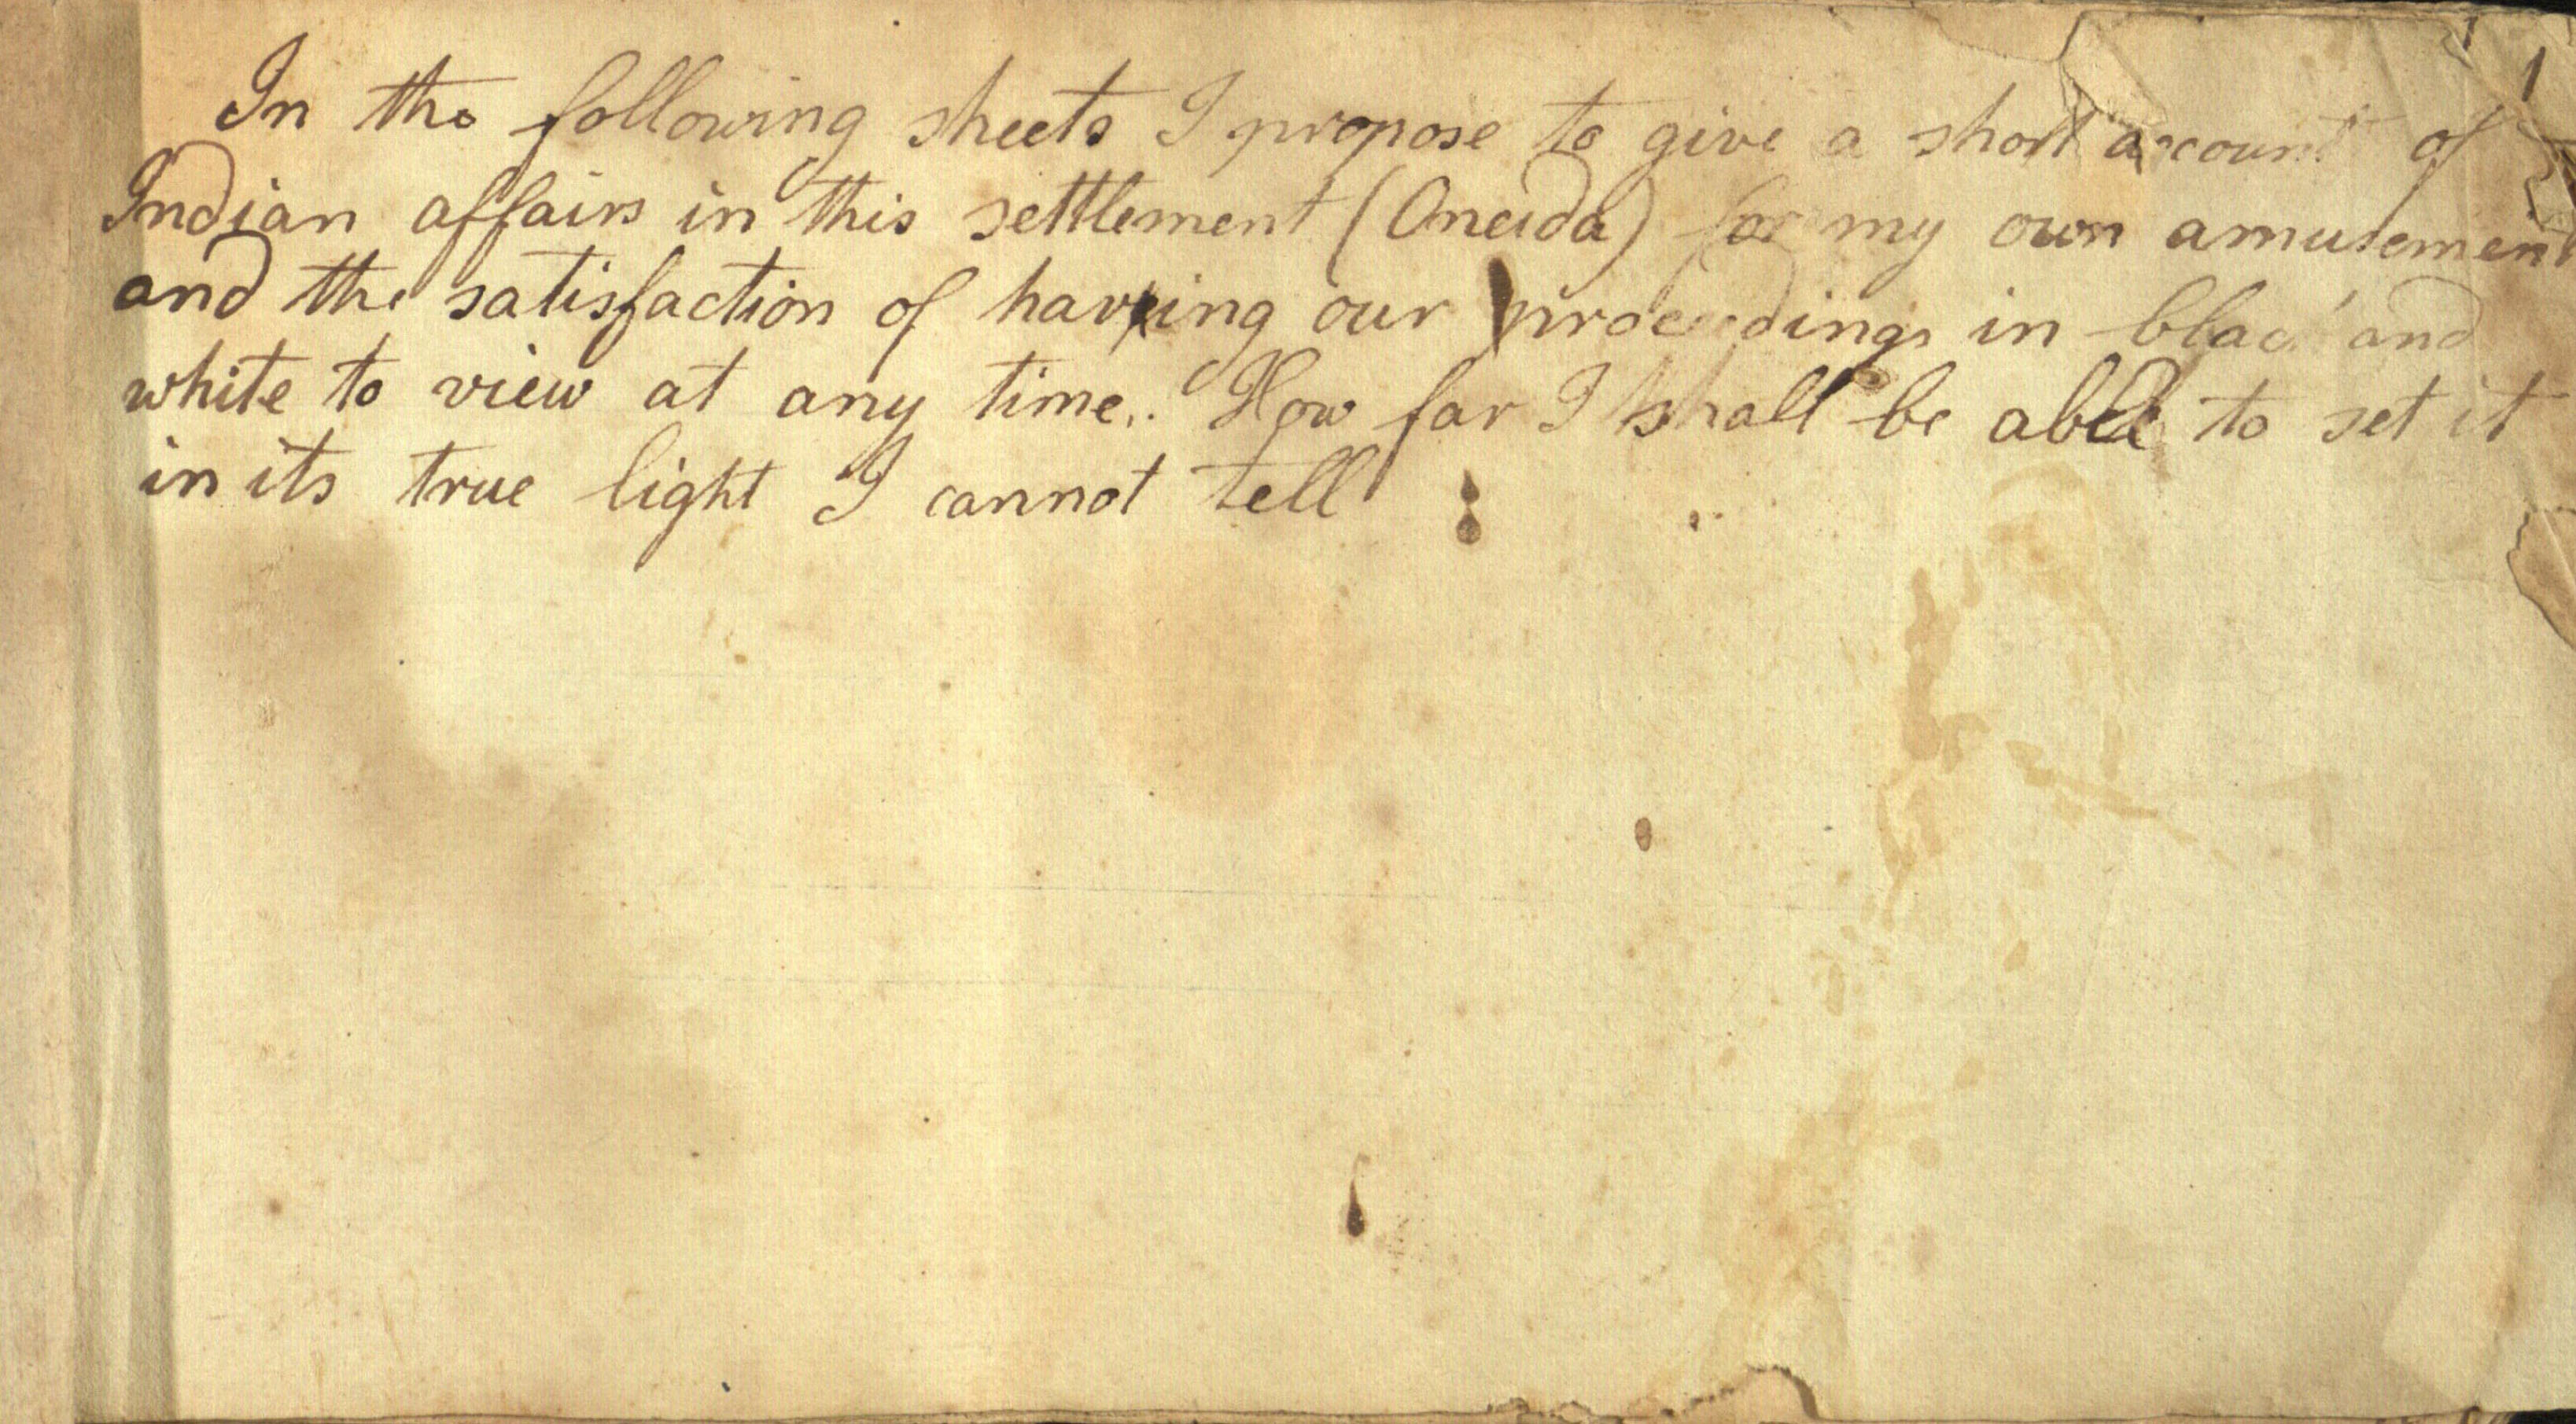 In the following sheets I propose to give a short account of
Indian affairs in this settlement (Oneida) for my own amusement
and the satisfaction of having our proceedings in black and
white to view at any time. How far I shall be able to set it
in its true light I cannot tell